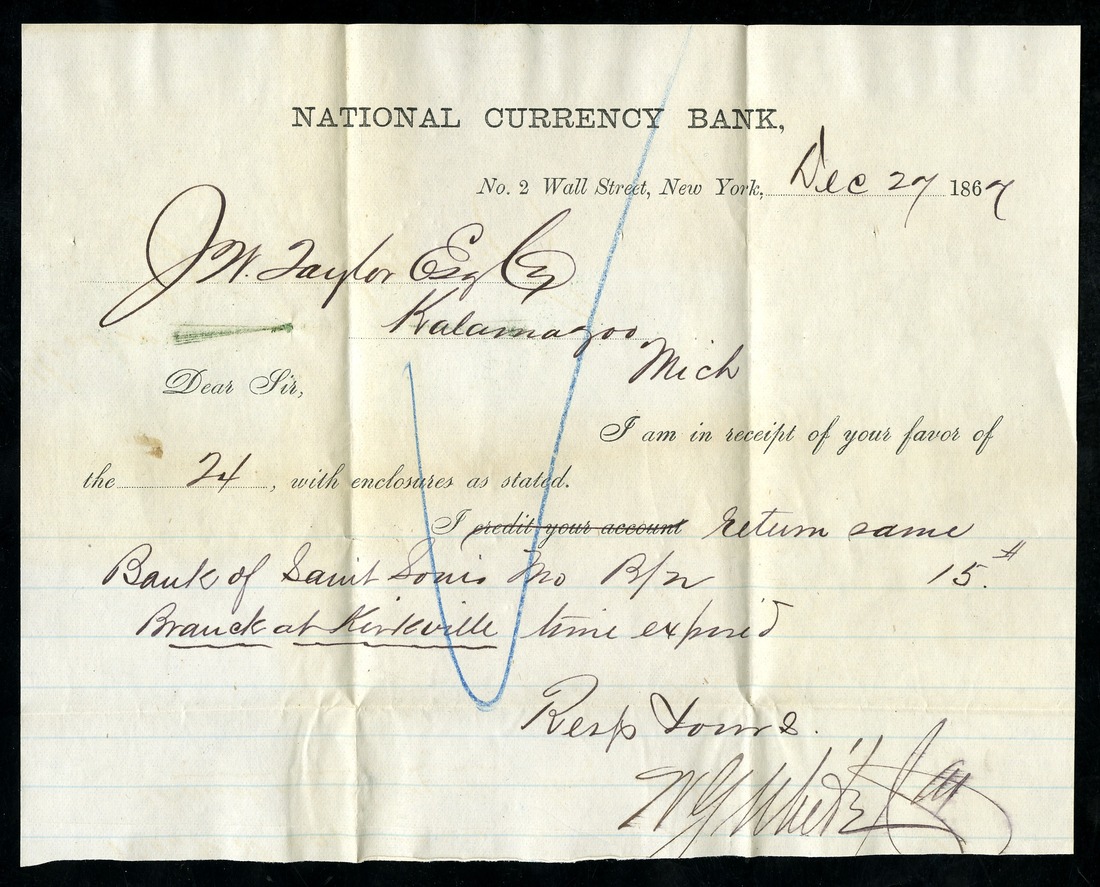 NATIONAL CURRENCY BANK,
No. 2 Wall Street, New York, Dec 27 1867
J. W. Taylor Esq Cy
Kalamazoo
Mich
Dear Sir,
I am in receipt of your favor of
the 24, with enclosures as stated.
I credit your account return same
Bank of Saint Louis Mo B/n 15.
Branch at Kirkville time expired
Resp Yours.